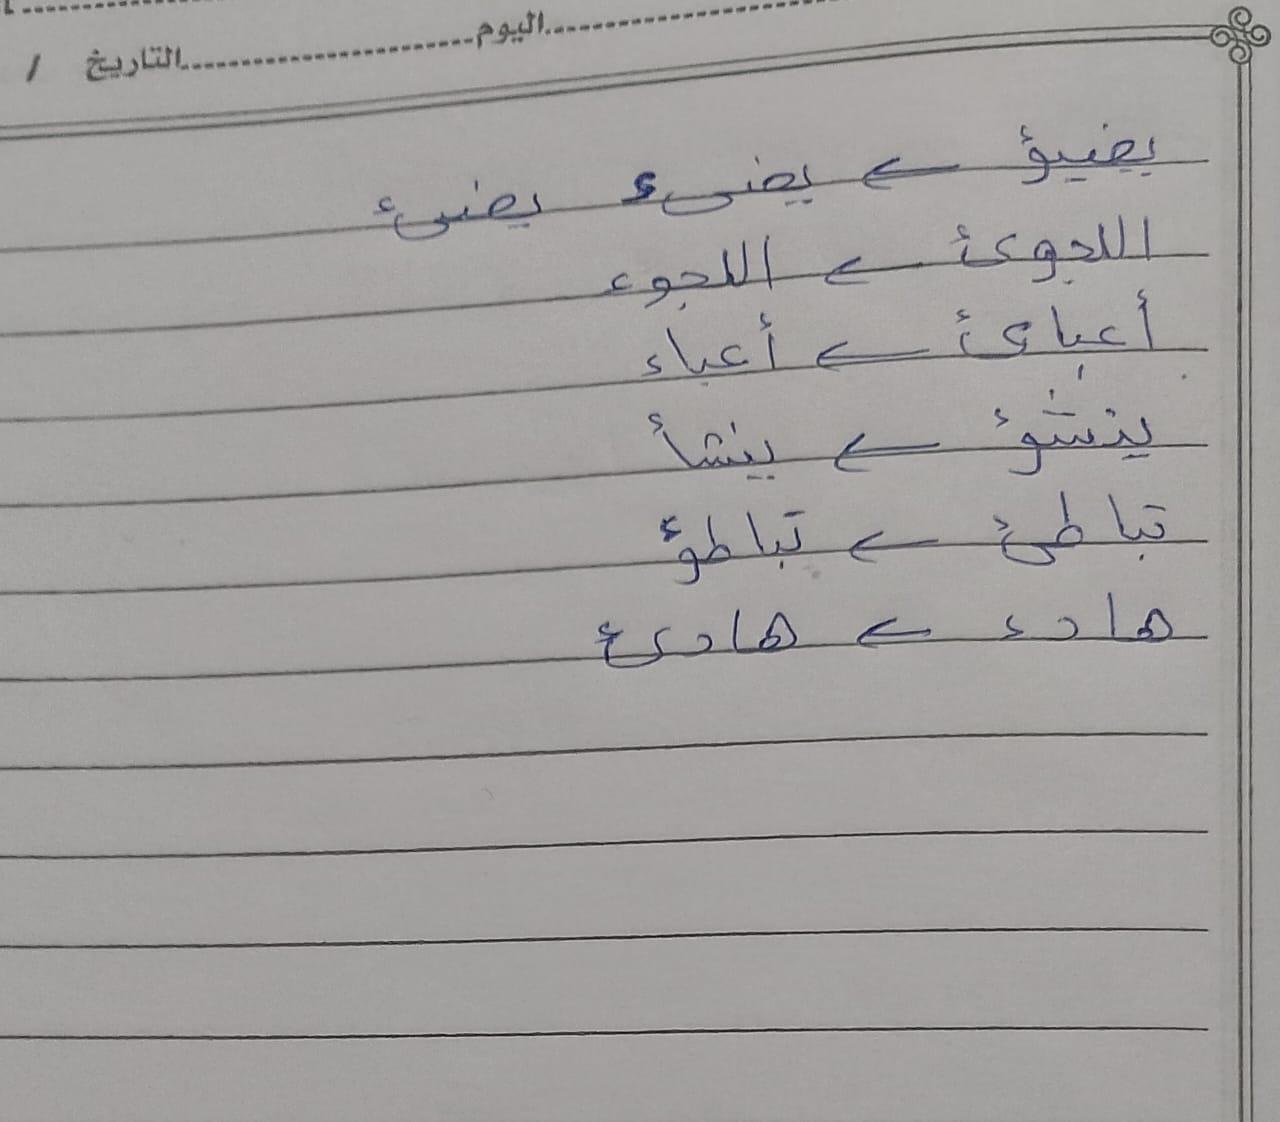 اليوم التاريخ /
يضيؤ ← يضىء يضئ
اللجوئ ← اللجوء
أعبائ ← أعباء
ينشؤ ← ينشأ
تباطئ ← تباطؤ
هادء ← هادئ